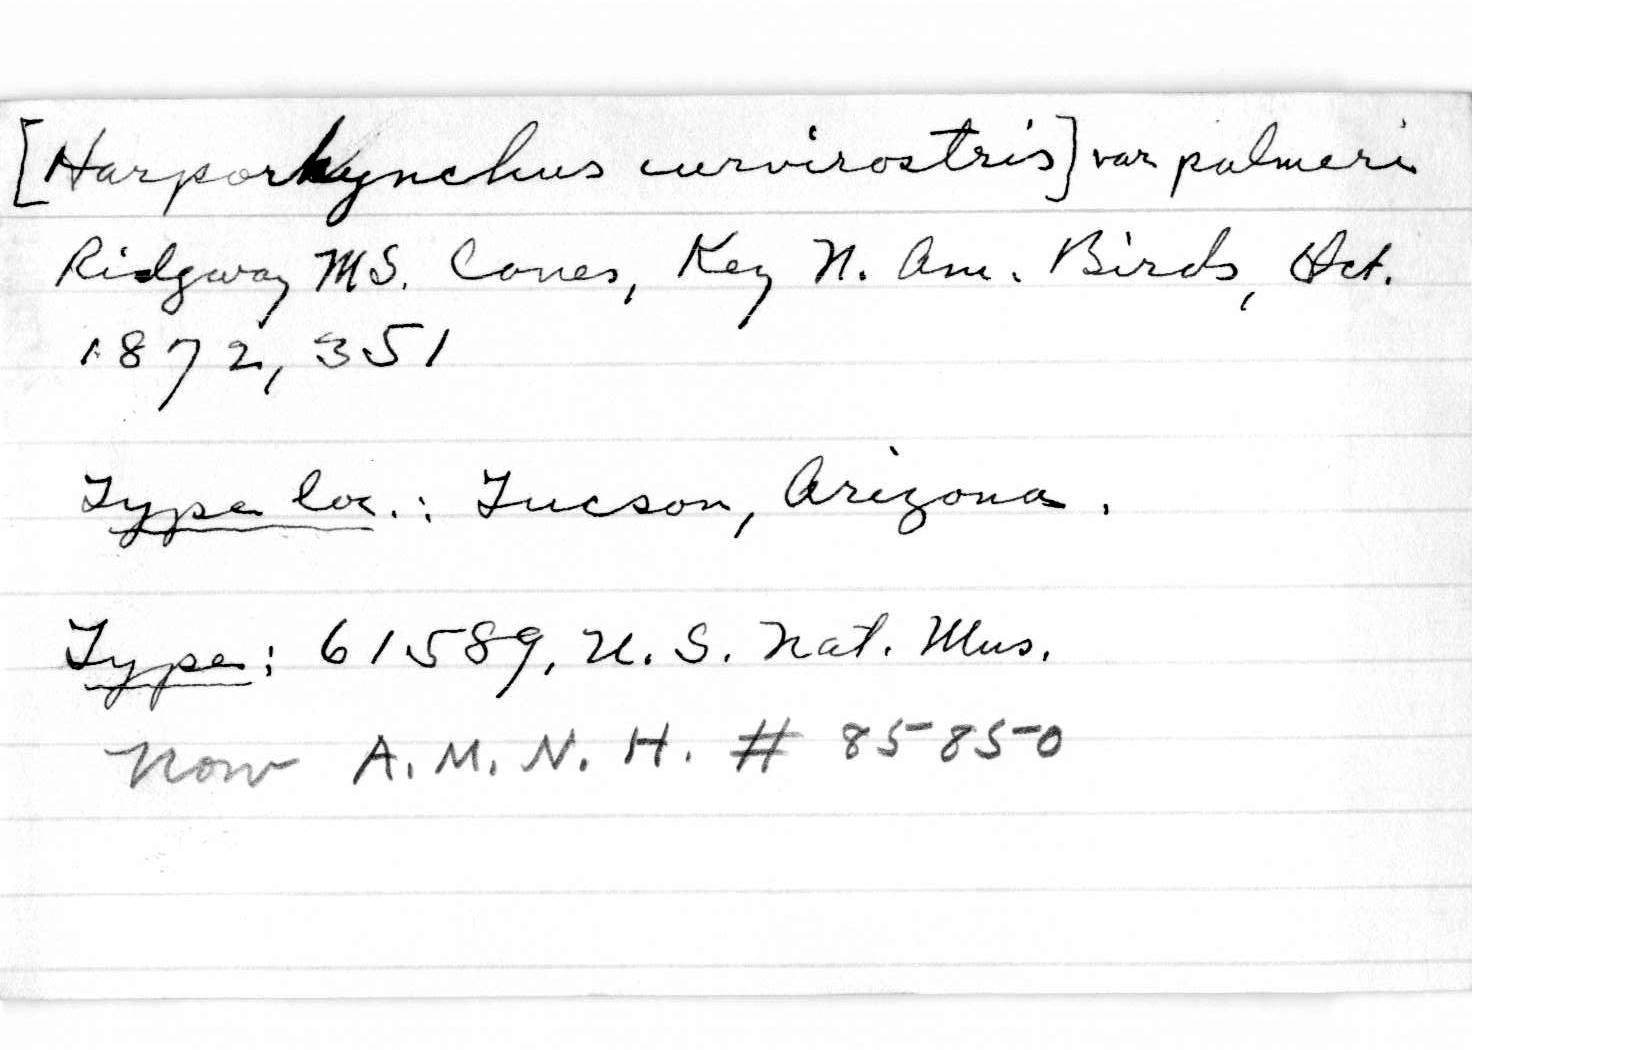 [Harporhynchus curvirostris] var palmeri
Ridgway MS. Coues, Key N. Am. Birds, Oct.
1872, 351
Type loc.: Tucson, Arizona.
Type: 61589, U. S. Nat. Mus.
Now A. M. N. H. # 85850